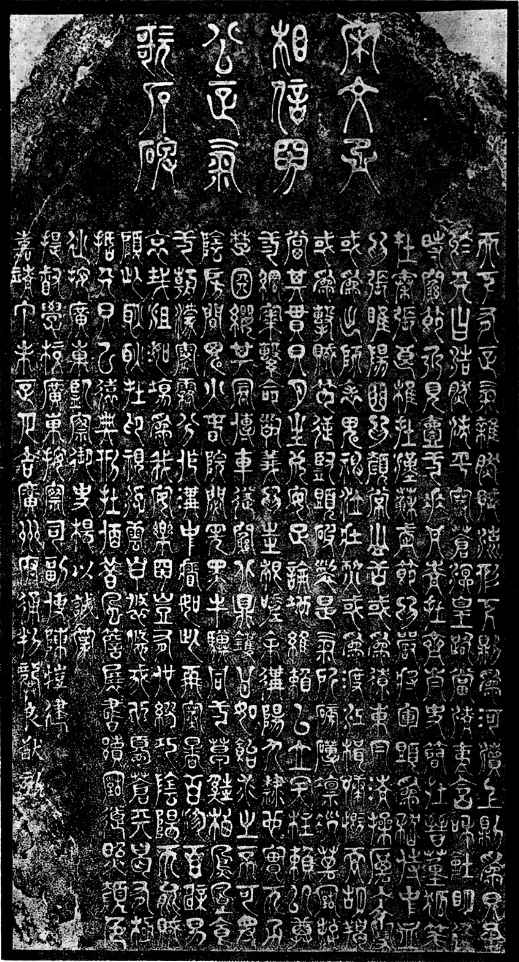 宋文丞
相信國
公正氣
歌石碑
天地有正氣雜然賦流形下則爲河嶽上則爲日星
於人曰浩然沛乎塞蒼冥皇路當清夷含和吐明廷
時窮節乃見一一垂丹青在齊太史簡在晉董狐筆
在秦張良椎在漢蘇武節爲嚴將軍頭爲嵇侍中血
爲張睢陽齒爲顏常山舌或爲遼東帽清操厲冰雪
或爲出師表鬼神泣壯烈或爲渡江楫慷慨吞胡羯
或爲擊賊笏逆豎頭破裂是氣所磅礴凜烈萬古存
當其貫日月生死安足論地維賴以立天柱賴以尊
三綱實繫命道義爲之根嗟予遘陽九隸也實不力
楚囚纓其冠傳車送窮北鼎鑊甘如飴求之不可得
陰房闃鬼火春院閟天黑牛驥同一皁雞棲鳳凰食
一朝濛霧露分作溝中瘠如此再寒暑百沴自辟易
哀哉沮洳場爲我安樂國豈有他繆巧陰陽不能賊
顧此耿耿在仰視浮雲白悠悠我心憂蒼天曷有極
哲人日已遠典刑在夙昔風簷展書讀古道照顏色
巡按廣東監察御史楊以誠篆
提督學校廣東按察司副使陳塏建
嘉靖丁未正月吉廣州府通判